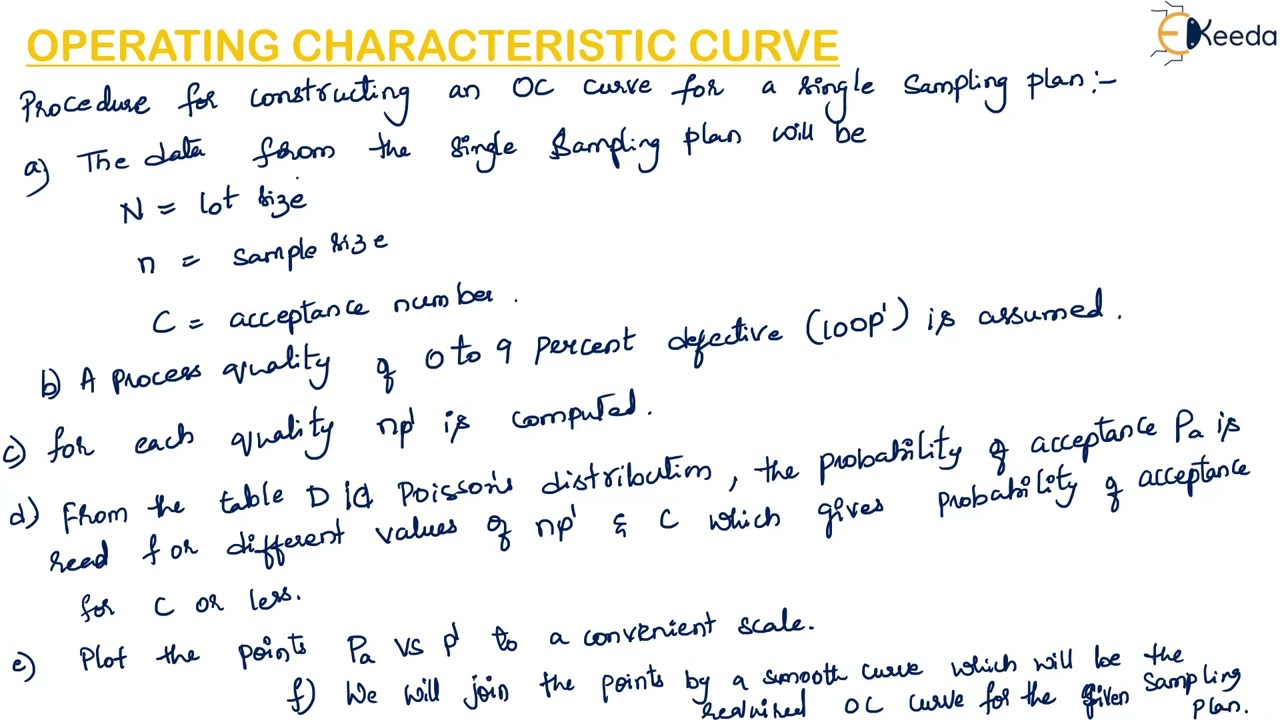 OPERATING CHARACTERISTIC CURVE
EKeeda
Procedure for constructing an OC curve for a single sampling plan:-
a) The data from the single sampling plan will be
N = lot size
n = sample size
C = acceptance number.
b) A process quality of 0 to 9 percent defective (100p') is assumed.
c) for each quality np' is computed.
d) From the table D Poisson's distribution, the probability of acceptance Pa is
read for different values of np' & C which gives probability of acceptance
for C or less.
e) Plot the points Pa vs p' to a convenient scale.
f) We will join the points by a smooth curve which will be the
required OC curve for the given sampling
plan.